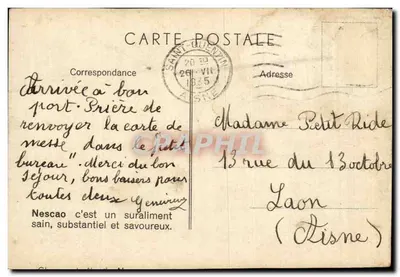 CARTE POSTALE
SAINT-QUENTIN
20 30
26 VII
1935
AISNE
Correspondance
Adresse
Arrivée à bon
port. Prière de
renvoyer la carte de
messe dans le "petit
bureau". Merci du bon
séjour, bons baisers pour
toutes deux Geneviève
Nescao c'est un suraliment
sain, substantiel et savoureux.
Madame Petit Ride
13 rue du 13 octobre
Laon
(Aisne)
PRIVATE COLLECTION